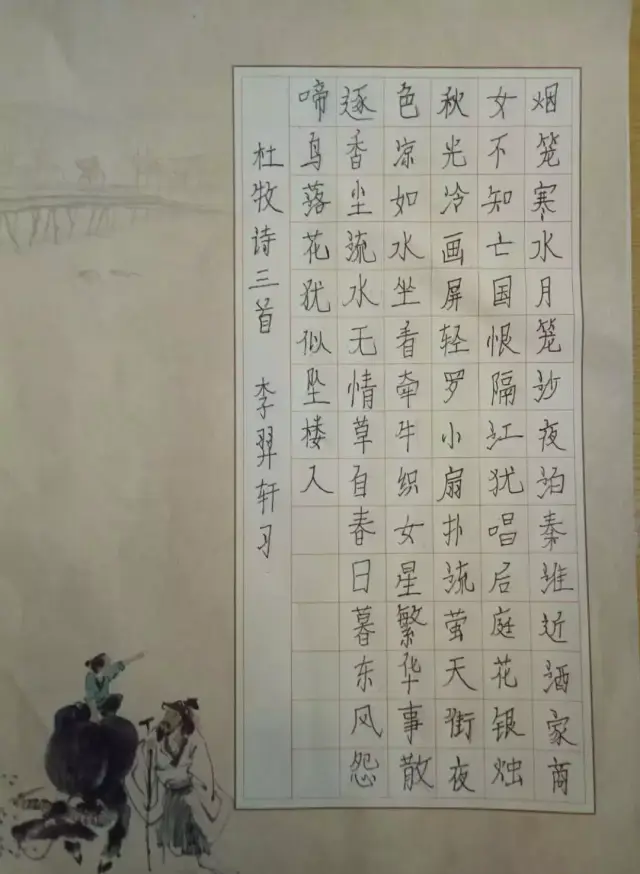 烟笼寒水月笼沙夜泊秦淮近酒家商
女不知亡国恨隔江犹唱后庭花银烛
秋光冷画屏轻罗小扇扑流萤天街夜
色凉如水坐看牵牛织女星繁华事散
逐香尘流水无情草自春日暮东风怨
啼鸟落花犹似坠楼人
杜牧诗三首 李羿轩习